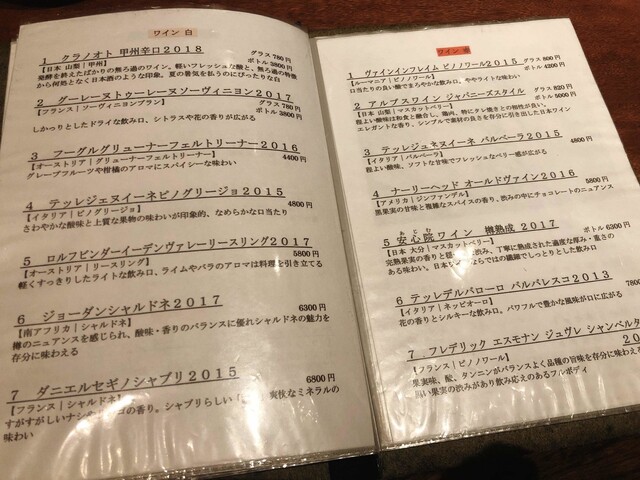 ワイン 白
1 クラノオト 甲州辛口2018
グラス 780円
ボトル 3800円
【日本 山梨|甲州】
発酵を終えたばかりの無ろ過のワイン。軽いフレッシュな酸と、無ろ過の特徴
から何処なく日本酒のような印象。夏の暑気を払うのにぴったりな白
2 グーレーヌトゥーレーヌソーヴィニヨン2017
グラス 780円
ボトル 3800円
【フランス|ソーヴィニヨンブラン】
しかっりとしたドライな飲み口、シトラスや花の香りが広がる
3 フーグルグリューナーフェルトリーナー2016
4400円
【オーストリア|グリューナーフェルトリーナー】
グレープフルーツや柑橘のアロマにスパイシーな味わい
4 テッレジェヌイーネピノグリージョ2015
4800円
【イタリア|ピノグリージョ】
さわやかな酸味と上質な果物の味わいが印象的、なめらかな口当たり
5 ロルフビンダーイーデンヴァレーリースリング2017
5800円
【オーストリア|リースリング】
軽くすっきりしたライトな飲み口、ライムやバラのアロマは料理を引き立てる
6 ジョーダンシャルドネ2017
6300円
【南アフリカ|シャルドネ】
樽のニュアンスを感じられ、酸味・香りのバランスに優れシャルドネの魅力を
存分に味わえる
7 ダニエルセギノシャブリ2015
6800円
【フランス|シャルドネ】
すがすがしいナシや
の香り。シャブリらしい
爽快なミネラルの
味わい
ワイン
1 ヴァインインフレイム ピノノワール2015
グラス 800円
ボトル 4200円
【ルーマニア|ピノノワール】
口当たりの良い酸でまろやかな飲み口、ややライトな味わい
2 アルプスワイン ジャパニーズスタイル
グラス 820円
ボトル 5000円
【日本 山梨|マスカットベリー】
程よい酸味は和食と融合し、鶏肉、特にタレ焼きとの相性が良い。
エレガントな香り、シンプルで素材の良さを十分に引き出した日本ワイン
3 テッレジェヌイーネ バルベーラ2015
4800円
【イタリア|バルベーラ】
程よい酸味、ソフトな甘味でフレッシュなベリー感が広がる
4 ナーリーヘッド オールドヴァイン2016
5800円
【アメリカ|ジンファンデル】
黒果実の甘味と複雑なスパイスの香り、渋みの中にチョコレートのニュアンス
5 安心院ワイン 樽熟成 2017
あじむ
ボトル 6300円
【日本 大分|マスカットベリー】
完熟果実の香りと
渋み、丁寧に熟成された適度な厚み・重さの
ある味わい。日本
ならではの繊細でしっとりとした飲み口
6 テッレデルバローロ バルバレスコ2013
7800円
【イタリア|ネッビオーロ】
花の香りとシルキーな飲み口、パワフルで豊かな風味が口に広がる
7 フレデリック エスモナン ジュヴレ シャンベルタ
【フランス|ピノノワール】
果実味、酸、タンニンがバランスよく品種の旨味を存分に味わえ
果実の渋みがあり飲み応えのあるフルボディ